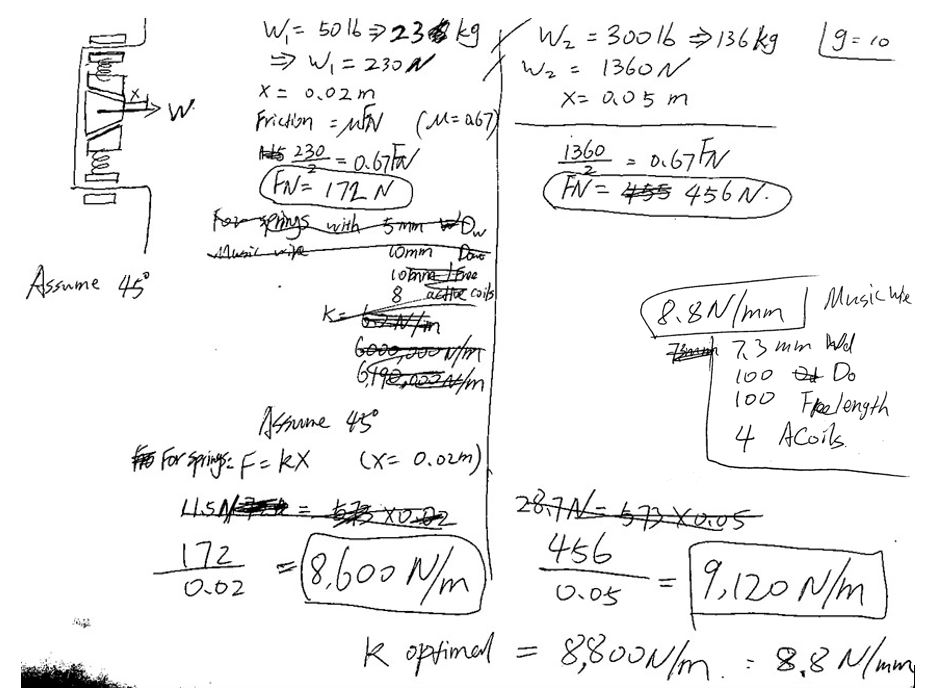 x
W
Assume 45°
W₁ = 50 lb ⇒ 23 kg
⇒ W₁ = 230 N
x = 0.02 m
Friction = μFN (μ = 0.67)
230/2 = 0.67 FN
FN = 172 N
For springs with 5mm Dw
Music wire 10mm
10mm Free
8 active coils
K =
6000,000 N/m
Assume 45°
For springs: F = kX (X = 0.02m)
11.5N = 573 X 0.02
172/0.02 = 8,600 N/m
W₂ = 300 lb ⇒ 136 kg
g = 10
W₂ = 1360 N
x = 0.05 m
1360/2 = 0.67 FN
FN = 455 456 N.
8.8 N/mm Music wire
7.3 mm Wd
100 Do
100 Free length
4 ACoils
28.7N = 573 X 0.05
456/0.05 = 9,120 N/m
K optimal = 8,800 N/m = 8.8 N/mm